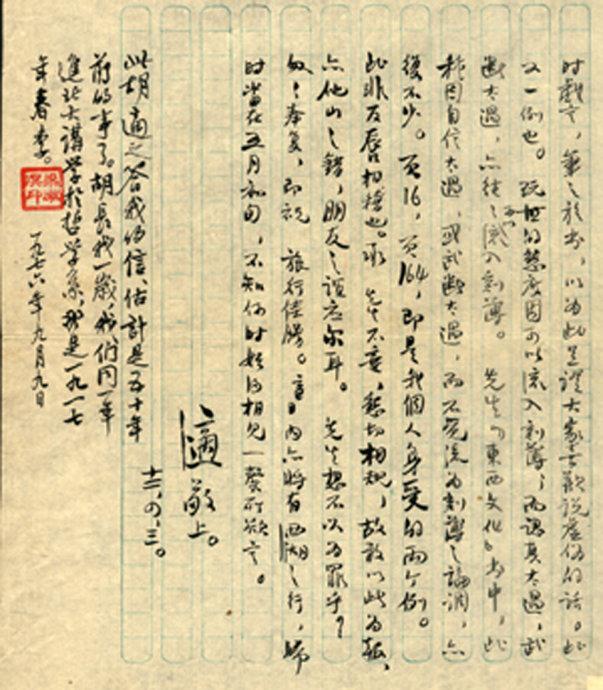 时戲言，筆之於書，以為此足證大家喜歡說虛偽的話。此
又一例也。玩世的態度固可以流入刻薄，而認真太過，武
斷太過，亦往往流入刻薄。 先生「東西文化」書中，此
種因自信太過，或武斷太過，而不覺流為刻薄之論調，亦
復不少。頁16，頁164，即是我個人身受的兩个例。
此非反唇相稽也。承 先生不棄，懇切相規，故敢以此為報，
亦他山之錯，朋友之誼应尔耳。 先生想不以為罪乎？
匆匆奉复，即祝 旅行佳勝。 內亦將有西湖之行，歸
时當在五月初旬，不知何时始得相見一罄所欲言。
適敬上。
十二、四、三。
此胡適之答我的信，估計是五十年
前的事了。胡長我一歲，我们同一年
進北大講學於哲学系，那是一九一七
年春季。
一九七六年九月九日